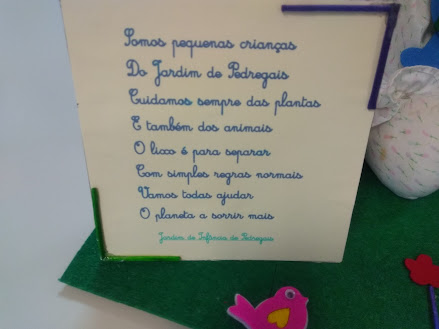 Somos pequenas crianças
Do Jardim de Pedregais
Cuidamos sempre das plantas
E também dos animais
O lixo é para separar
Com simples regras normais
Vamos todas ajudar
O planeta a sorrir mais
Jardim de Infância de Pedregais